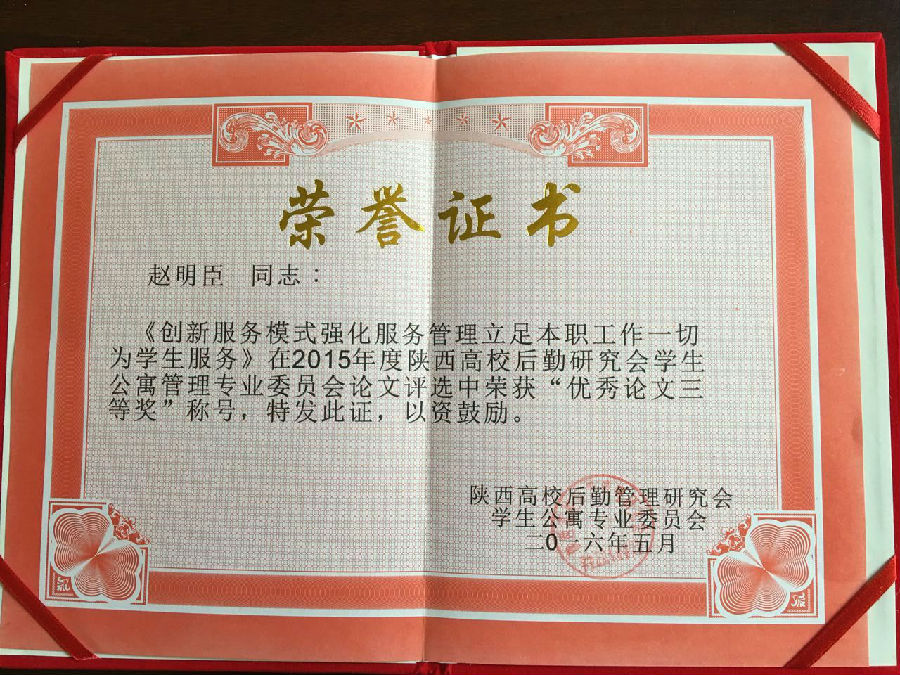 荣誉证书
赵明臣 同志：
《创新服务模式强化服务管理立足本职工作一切
为学生服务》在2015年度陕西高校后勤研究会学生
公寓管理专业委员会论文评选中荣获“优秀论文三
等奖”称号，特发此证，以资鼓励。
陕西高校后勤管理研究会
学生公寓专业委员会
二〇一六年五月